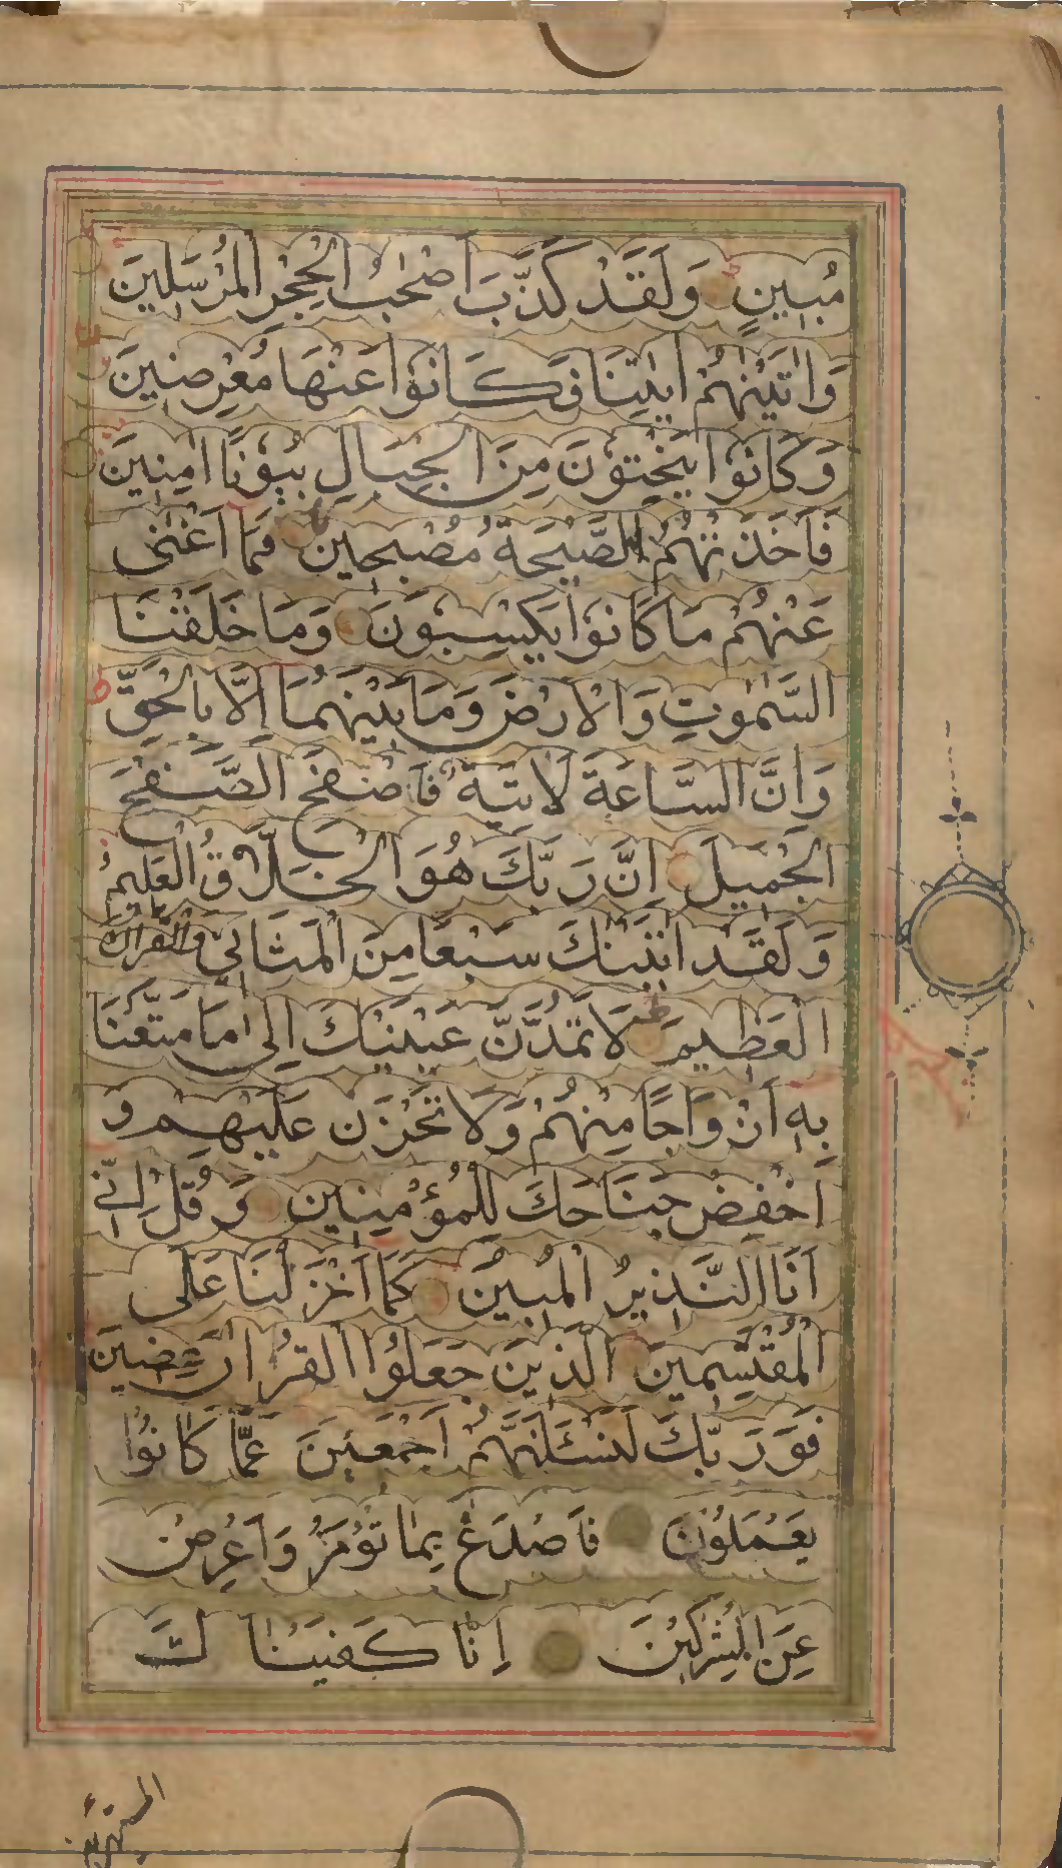 مُبِينٍ وَلَقَدْ كَذَّبَ اَصْحٰبُ الْحِجْرِ الْمُرْسَلِينَ
وَاٰتَيْنٰهُمْ اٰيٰتِنَا فَكَانُوْا عَنْهَا مُعْرِضِينَ
وَكَانُوْا يَنْحِتُوْنَ مِنَ الْجِبَالِ بُيُوْتًا اٰمِنِينَ
فَاَخَذَتْهُمُ الصَّيْحَةُ مُصْبِحِينَ فَمَا اَغْنٰى
عَنْهُمْ مَا كَانُوْا يَكْسِبُوْنَ وَمَا خَلَقْنَا
السَّمٰوٰتِ وَالْاَرْضَ وَمَا بَيْنَهُمَا اِلَّا بِالْحَقِّ
وَاِنَّ السَّاعَةَ لَاٰتِيَةٌ فَاصْفَحِ الصَّفْحَ
الْجَمِيلَ اِنَّ رَبَّكَ هُوَ الْخَلّٰقُ الْعَلِيمُ
وَلَقَدْ اٰتَيْنٰكَ سَبْعًا مِنَ الْمَثَانِي وَالْقُرْاٰنَ
الْعَظِيمَ لَا تَمُدَّنَّ عَيْنَيْكَ اِلٰى مَا مَتَّعْنَا
بِهٖ اَزْوَاجًا مِنْهُمْ وَلَا تَحْزَنْ عَلَيْهِمْ وَ
اخْفِضْ جَنَاحَكَ لِلْمُؤْمِنِينَ وَقُلْ اِنِّي
اَنَا النَّذِيرُ الْمُبِينُ كَمَا اَنْزَلْنَا عَلَى
الْمُقْتَسِمِينَ الَّذِينَ جَعَلُوا الْقُرْاٰنَ عِضِينَ
فَوَرَبِّكَ لَنَسْـَٔلَنَّهُمْ اَجْمَعِينَ عَمَّا كَانُوْا
يَعْمَلُوْنَ فَاصْدَعْ بِمَا تُؤْمَرُ وَاَعْرِضْ
عَنِ الْمُشْرِكِينَ اِنَّا كَفَيْنٰكَ
المستهزئين